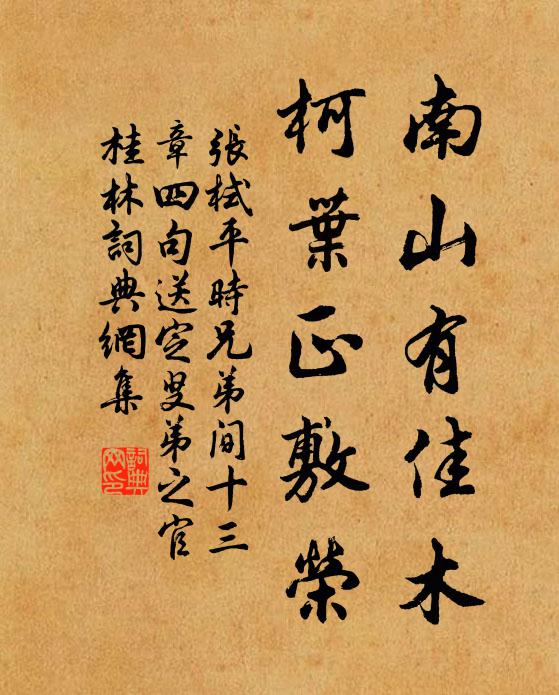 南山有佳木
柯葉正敷榮
張栻平時兄弟間十三
章四句送定叟弟之官
桂林詞典網集
詞典網印